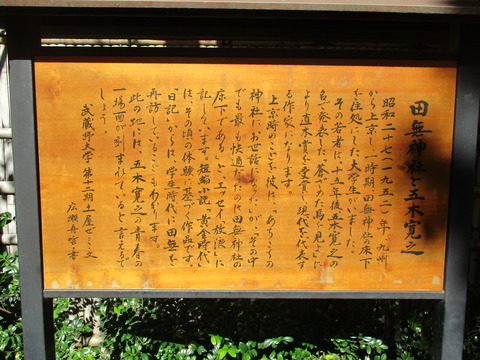 田無神社と五木寛之
昭和二十七(一九五二)年、九州
から上京し、一時期、田無神社の床下
を住処にした大学生がいました。
その若者は、十五年後五木寛之の
名で発表した「蒼ざめた馬を見よ」に
より直木賞を受賞し、現代を代表す
る作家になります。
上京時のことを彼は、「あちこちの
神社にお世話になったが、その中
でも最も快適だったのは田無神社の
床下である」と、エッセイ「放浪」に
記しています。短編小説「黄金時代」
は、その頃の体験に基づく作品です。
「日記」からは、学生時代に田無を
再訪していることもわかります。
此の地には、五木寛之の青春の
一場面が刻まれていると言えるで
しょう。
武蔵野大学 第十二期土屋ゼミ・文
広瀬舟雲書